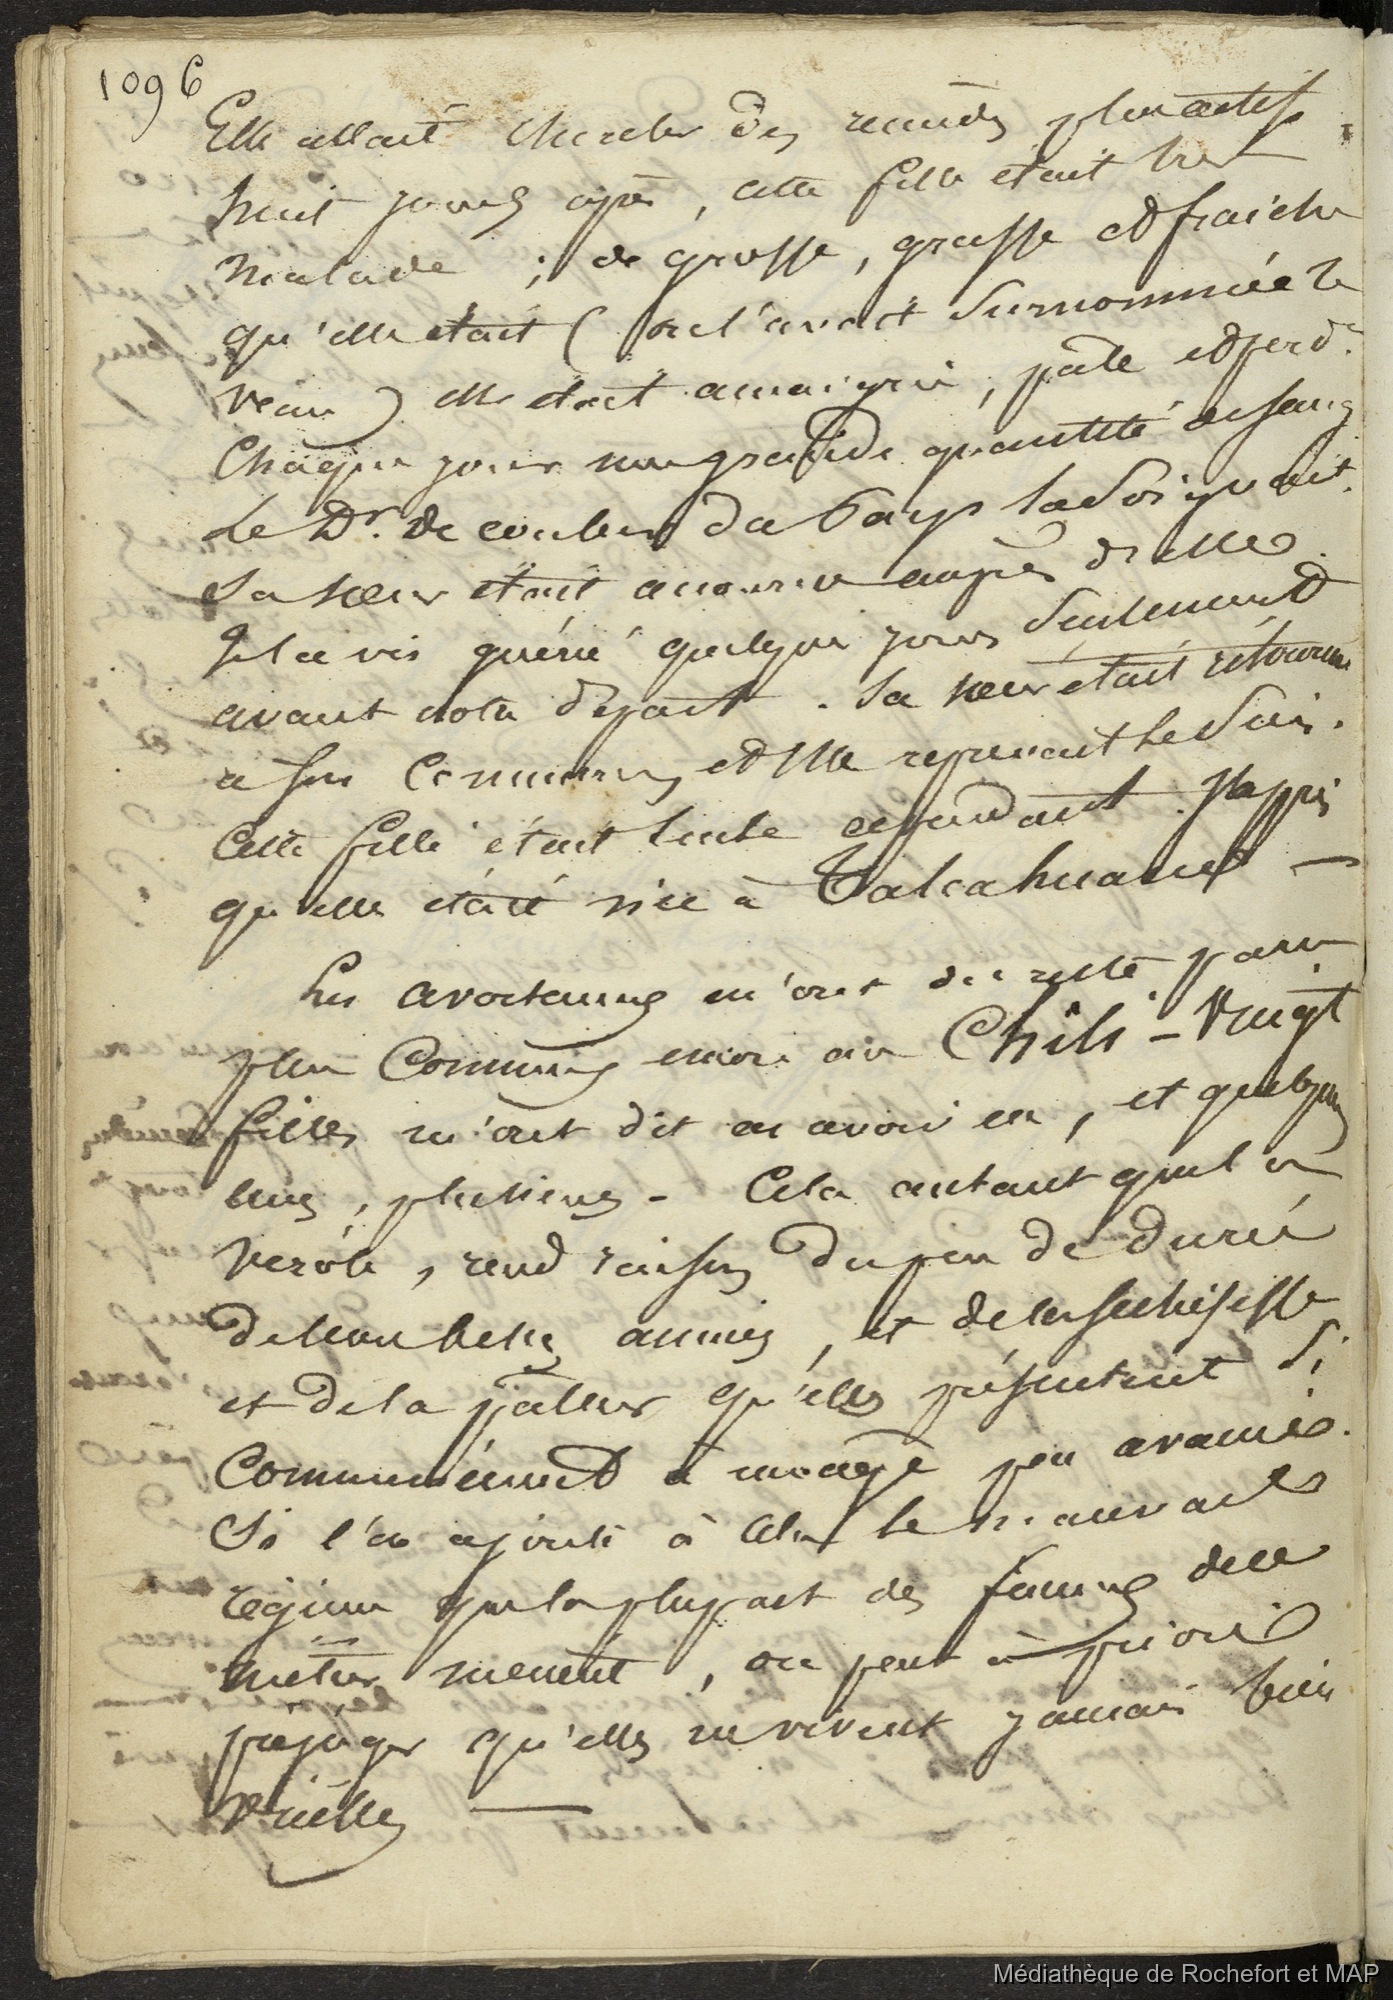 1096
Elle allait chercher des remèdes plus actifs
huit jours après, cette fille était très
malade ; de grosse, grasse et fraiche
qu'elle était ( on l'avait surnommée le
veau ) elle était amaigrie, pâle et perdt
Chaque jour une grande quantité de sang
Le Dr. de couleur du Pays la Soignait.
Sa sœur était accourue auprès d'elle.
Je la vis guérie quelques jours Seulement
avant notre départ. Sa sœur était retournée
a son Commerce, et elle reprenait le Sien.
Cette fille était cependant. J'appris
qu'elle était née à Talcahuano —
Les avortemens m'ont du reste paru
plus Communs encore au Chili - Vingt
filles m'ont dit en avoir eu, et quelques
unes, plusieurs - Cela autant que la
Verole, rend raison du peu de durée
de leurs belles années, et de la
et de la paleur qu'elles présentent si
Communément à un age peu avancé.
Si l'on ajoute à cela le mauvais
régime que la plupart des femmes de ce
métier menent, on peut à priori
préjuger qu'elles ne vivent jamais bien
vieilles —
Médiathèque de Rochefort et MAP